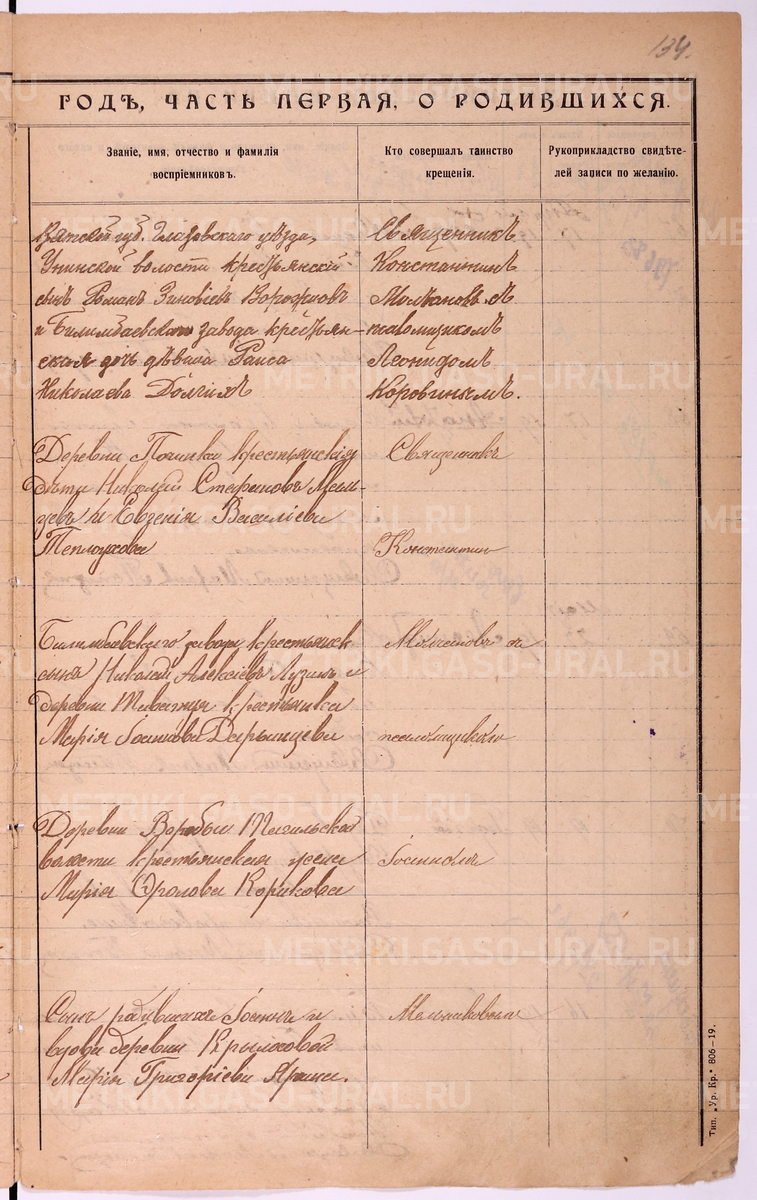 134.
ГОДЪ, ЧАСТЬ ПЕРВАЯ, О РОДИВШИХСЯ.
Званіе, имя, отчество и фамилія
воспріемниковъ.
Кто совершалъ таинство
крещенія.
Рукоприкладство свидѣте-
лей записи по желанію.
Вятской губ. Глазовскаго уѣзда,
Унинской волости крестьянскій
сынъ Романъ Зиновіевъ Ворожцовъ
и Билимбаевскаго завода крестьян-
ская дочь дѣвица Раиса
Николаева Долгихъ
Священникъ
Константинъ
Молчановъ съ
псаломщикомъ
Леонидомъ
Коровинымъ.
Деревни Починка крестьянскія
дѣти Николай Стефановъ Маль-
цевъ и Евгенія Васильева
Теплоухова
Священникъ
Константинъ
Билимбаевскаго завода крестьянск
сынъ Николай Алексѣевъ Лузинъ и
деревни крестьянка
Марія Іоаннова Дарьинцева
Молчановъ съ
псаломщикомъ
Деревни Воробьи Тагильской
волости крестьянская жена
Марія Фролова Корикова
Іоанномъ
Сынъ Іоаннъ и
вдова деревни Крылосовой
Марія Григоріева Ярина.
Мельниковымъ
Тип. „Ур. Кр." 806—19.
METRIKI.GASO-URAL.RU